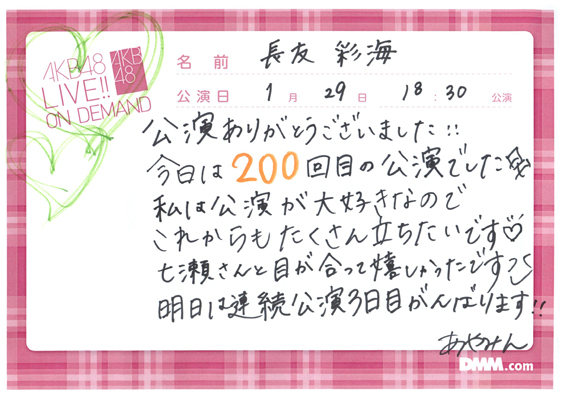 AKB48
LIVE!!
ON DEMAND
AKB
48
名前 長友 彩海
公演日 1月 29日 18:30 公演
公演ありがとうございました!!
今日は200回目の公演でした☆
私は公演が大好きなので
これからもたくさん立ちたいです♡
七瀬さんと目が合って嬉しかったです
明日は連続公演3日目がんばります!!
あやみん
DMM.com